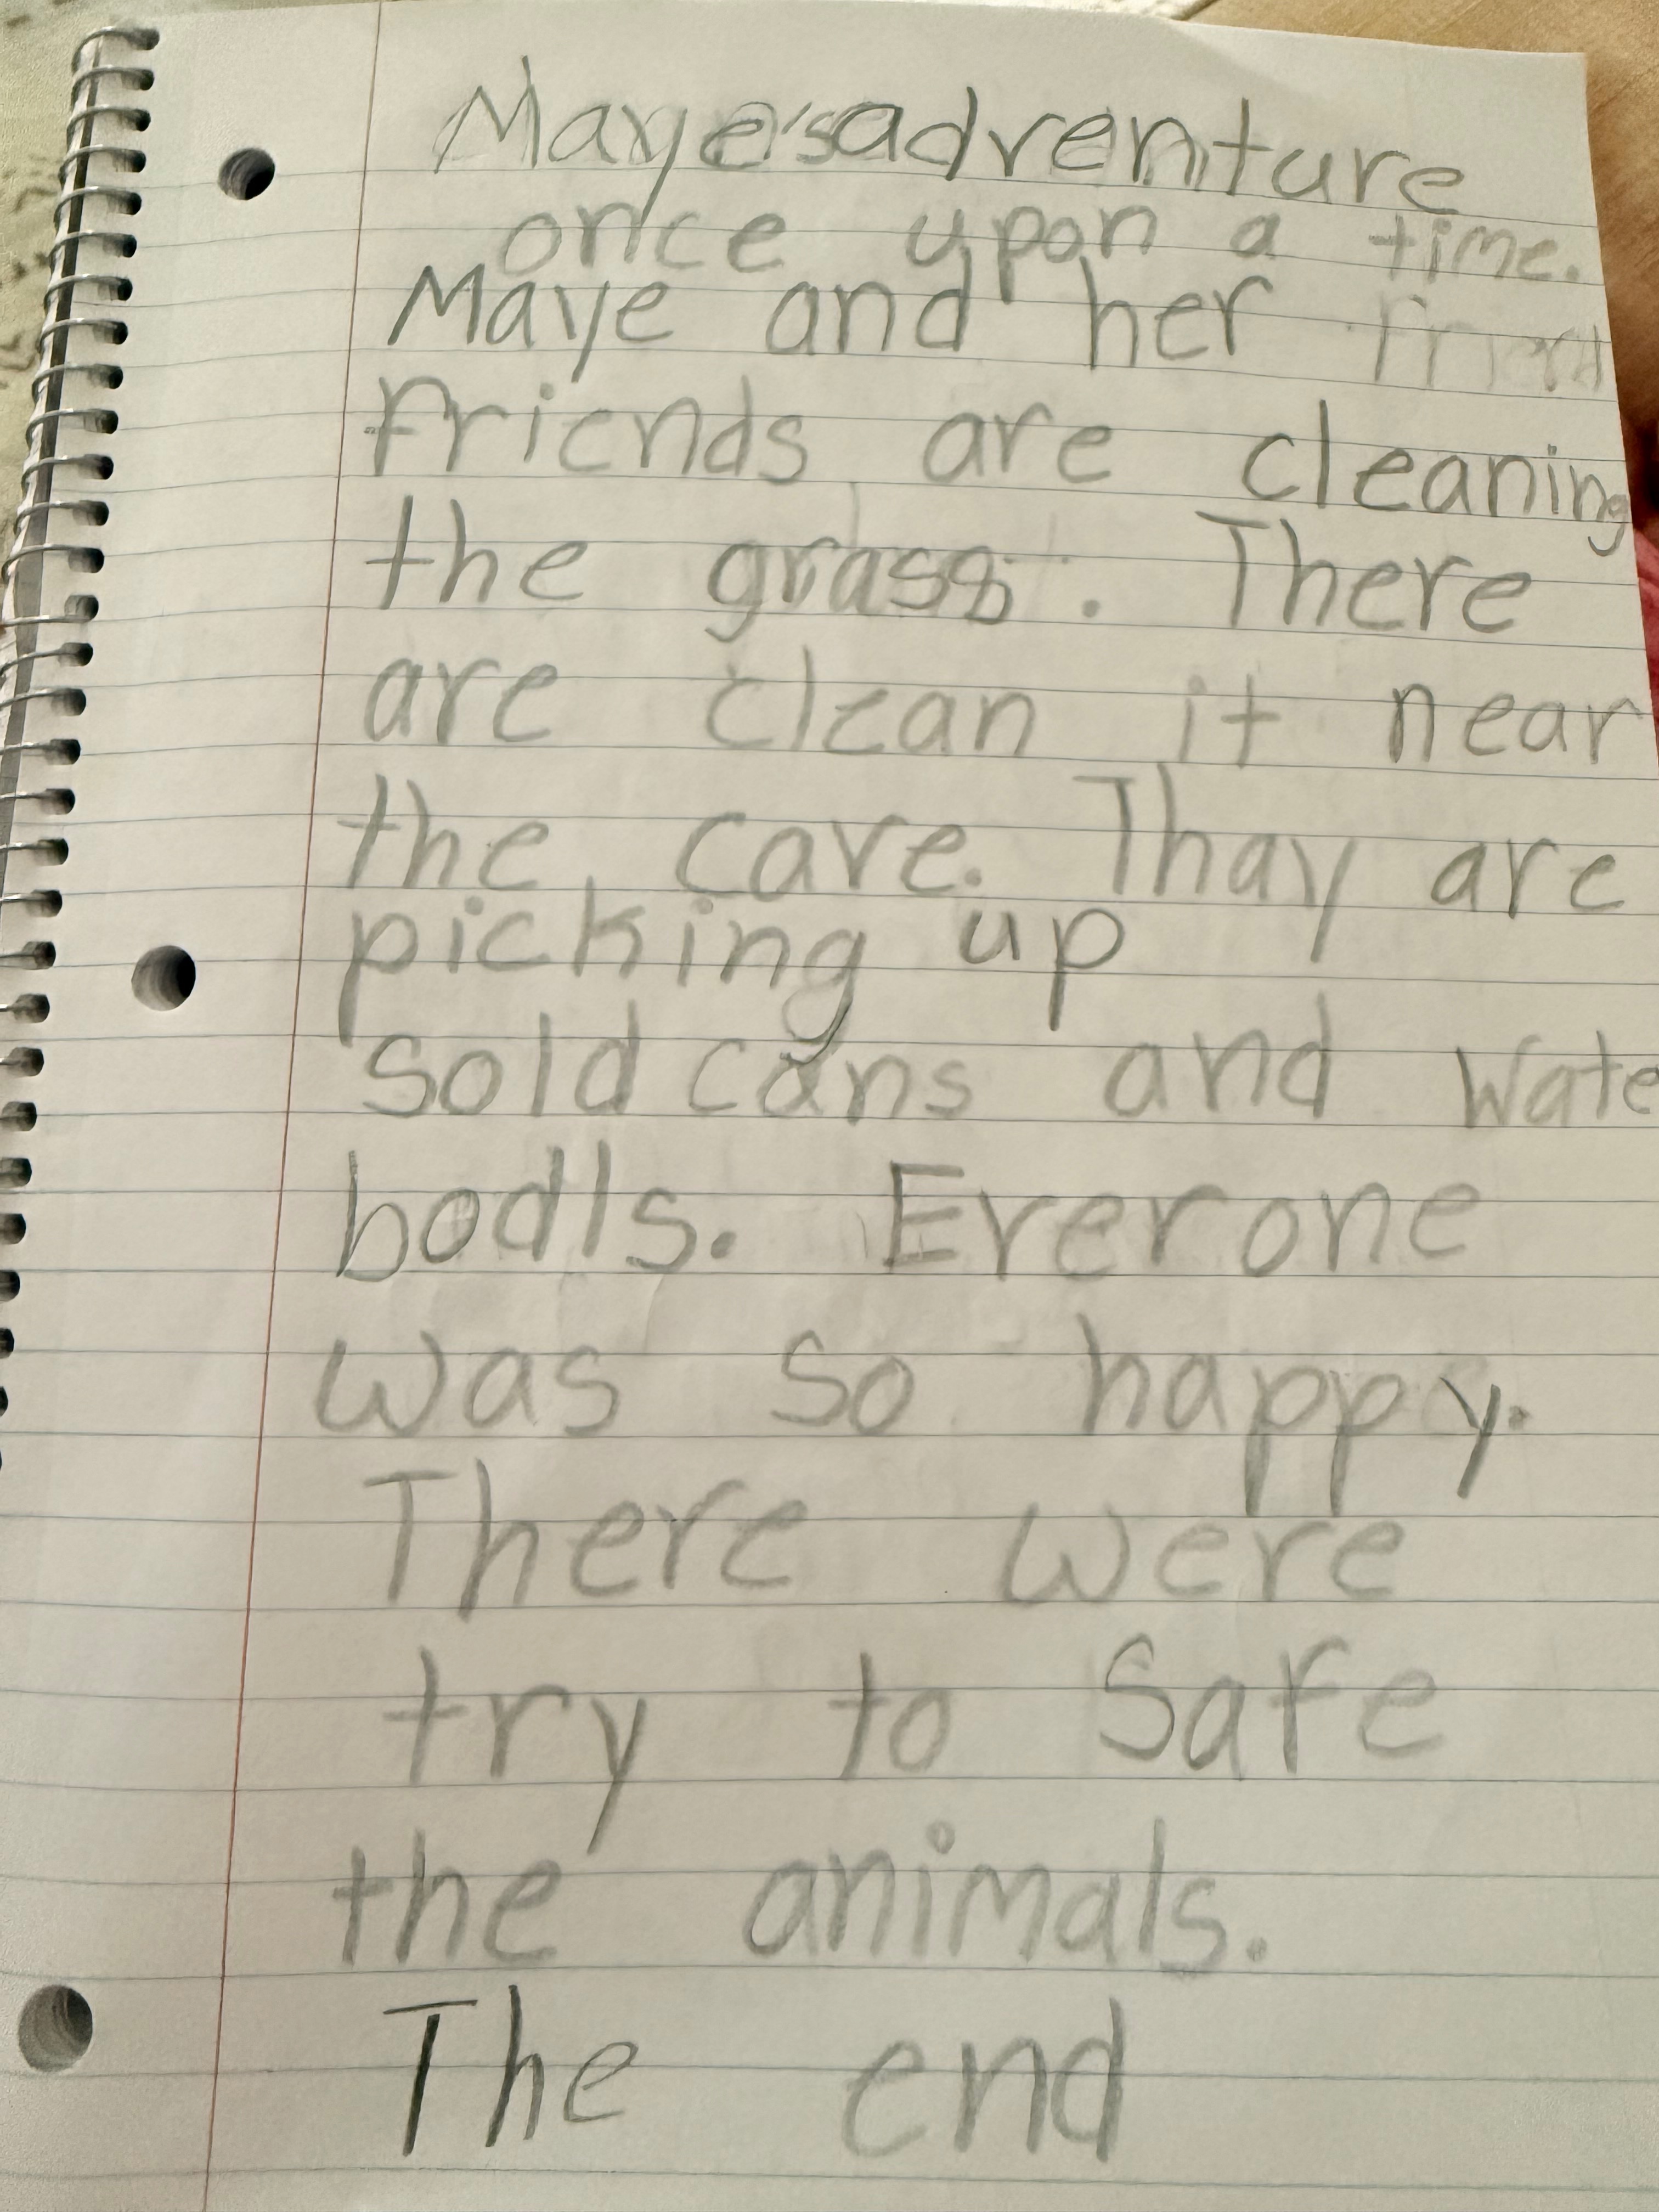 Maye's adventure
once upon a time.
Maye and her friend
friends are cleaning
the grass. There
are clean it near
the cave. Thay are
picking up
sold cans and wate
bodls. Everone
was so happy.
There were
try to safe
the animals.
The end